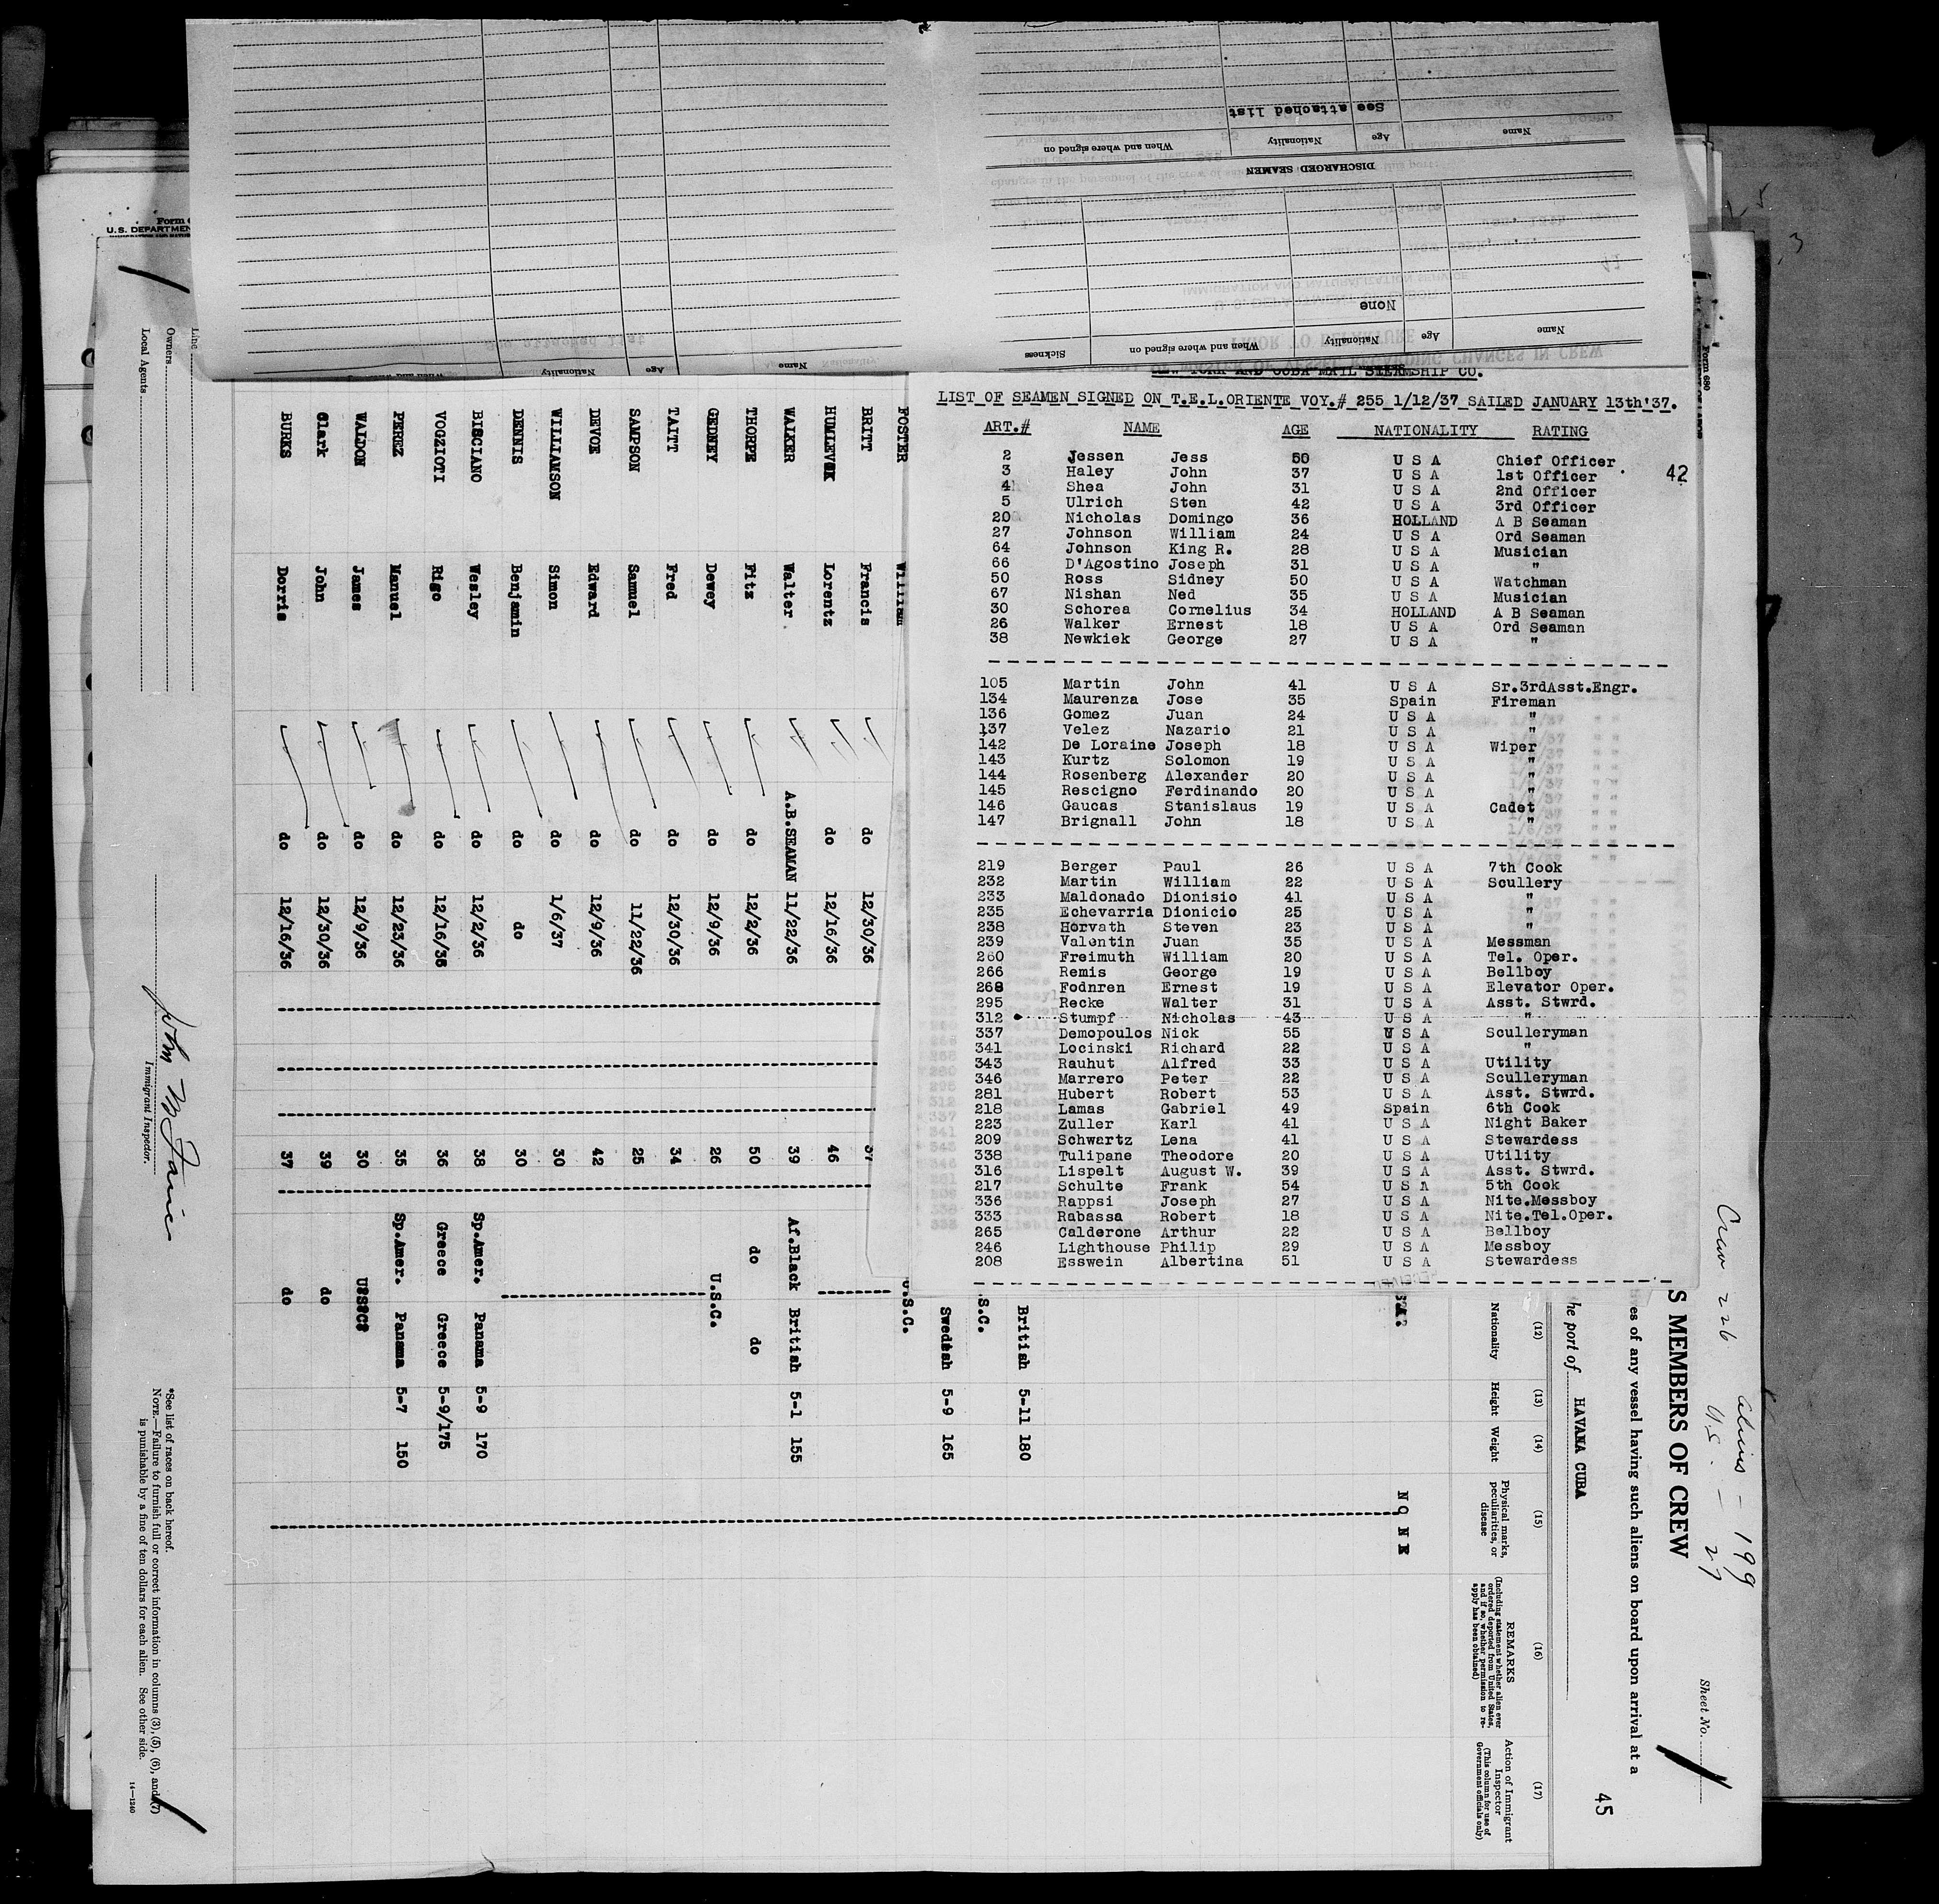 See attached list
Name Age Nationality When and where signed on
DISCHARGED SEAMEN
None
Name Age Nationality When and where signed on Sickness
NEW YORK AND CUBA MAIL STEAMSHIP CO.
LIST OF SEAMEN SIGNED ON T.E.L.ORIENTE VOY.# 255 1/12/37 SAILED JANUARY 13th'37.
ART.# NAME AGE NATIONALITY RATING
42
2 Jessen Jess 50 U S A Chief Officer
3 Haley John 37 U S A 1st Officer
4 Shea John 31 U S A 2nd Officer
5 Ulrich Sten 42 U S A 3rd Officer
20 Nicholas Domingo 36 HOLLAND A B Seaman
27 Johnson William 24 U S A Ord Seaman
64 Johnson King R. 28 U S A Musician
66 D'Agostino Joseph 31 U S A "
50 Ross Sidney 50 U S A Watchman
67 Nishan Ned 35 U S A Musician
30 Schorea Cornelius 34 HOLLAND A B Seaman
26 Walker Ernest 18 U S A Ord Seaman
38 Newkiek George 27 U S A "
105 Martin John 41 U S A Sr.3rdAsst.Engr.
134 Maurenza Jose 35 Spain Fireman
136 Gomez Juan 24 U S A "
137 Velez Nazario 21 U S A "
142 De Loraine Joseph 18 U S A Wiper
143 Kurtz Solomon 19 U S A "
144 Rosenberg Alexander 20 U S A "
145 Rescigno Ferdinando 20 U S A "
146 Gaucas Stanislaus 19 U S A Cadet
147 Brignall John 18 U S A "
219 Berger Paul 26 U S A 7th Cook
232 Martin William 22 U S A Scullery
233 Maldonado Dionisio 41 U S A "
235 Echevarria Dionicio 25 U S A "
238 Horvath Steven 23 U S A "
239 Valentin Juan 35 U S A Messman
260 Freimuth William 20 U S A Tel. Oper.
266 Remis George 19 U S A Bellboy
268 Fodnren Ernest 19 U S A Elevator Oper.
295 Recke Walter 31 U S A Asst. Stwrd.
312 Stumpf Nicholas 43 U S A "
337 Demopoulos Nick 55 U S A Sculleryman
341 Locinski Richard 22 U S A "
343 Rauhut Alfred 33 U S A Utility
346 Marrero Peter 22 U S A Sculleryman
281 Hubert Robert 53 U S A Asst. Stwrd.
218 Lamas Gabriel 49 Spain 6th Cook
223 Zuller Karl 41 U S A Night Baker
209 Schwartz Lena 41 U S A Stewardess
338 Tulipane Theodore 20 U S A Utility
316 Lispelt August W. 39 U S A Asst. Stwrd.
217 Schulte Frank 54 U S A 5th Cook
336 Rappsi Joseph 27 U S A Nite.Messboy
333 Rabassa Robert 18 U S A Nite.Tel.Oper.
265 Calderone Arthur 22 U S A Bellboy
246 Lighthouse Philip 29 U S A Messboy
208 Esswein Albertina 51 U S A Stewardess
Form 680
Crew 226
aliens - 199
U.S. - 27
Sheet No.
S MEMBERS OF CREW
es of any vessel having such aliens on board upon arrival at a
45
he port of HAVANA CUBA
(12) (13) (14) (15) (16) (17)
Nationality Height Weight Physical marks, peculiarities, or disease
REMARKS
(Including statement whether alien ever ordered deported from United States, and if so, whether permission to reapply has been obtained)
Action of Immigrant Inspector
(This column for use of Government officials only)
N O N E
British 5-11 180
S.C.
Swedish 5-9 165
FOSTER William U.S.C.
BRITT Francis do 12/30/36 37
HUMLEVIK Lorentz do 12/16/36 46
WALKER Walter A.B.SEAMAN 11/22/36 39 Af.Black British 5-1 155
THORPE Fitz do 12/2/36 50 do do
GEDNEY Dewey do 12/9/36 26 U.S.C.
TAITT Fred do 12/30/36 34
SAMPSON Samuel do 11/22/36 25
DEVOE Edward do 12/9/36 42
WILLIAMSON Simon do 1/6/37 30
DENNIS Benjamin do do 30
BISCIANO Wesley do 12/2/36 38 Sp.Amer. Panama 5-9 170
VOGZIOTI Rigo do 12/16/36 36 Greece Greece 5-9/175
PEREZ Manuel do 12/23/36 35 Sp.Amer. Panama 5-7 150
WALDON James do 12/9/36 30 USC
Clark John do 12/30/36 39 do
BURKS Dorris do 12/16/36 37 do
Line
Owners
Local Agents
Immigrant Inspector.
*See list of races on back hereof.
NOTE.—Failure to furnish full or correct information in columns (3), (5), (6), and (7)
is punishable by a fine of ten dollars for each alien. See other side.
14—1240
U.S. DEPARTMEN